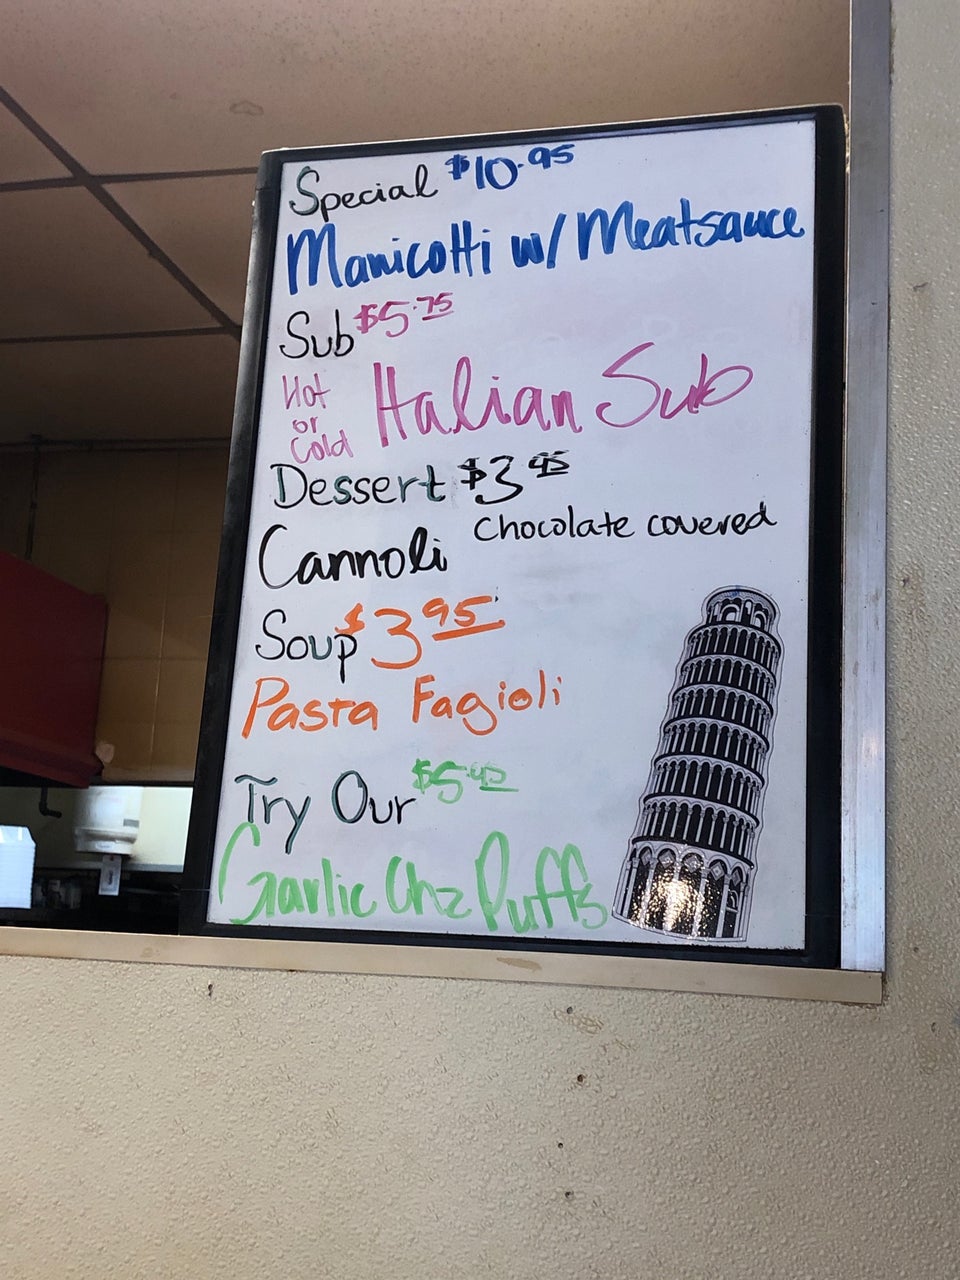 Special $10.95
Manicotti w/ Meatsauce
Sub $5.75
Hot or Cold Italian Sub
Dessert $3.95
Cannoli Chocolate covered
Soup $3.95
Pasta Fagioli
Try Our $5.95
Garlic Chz Puffs